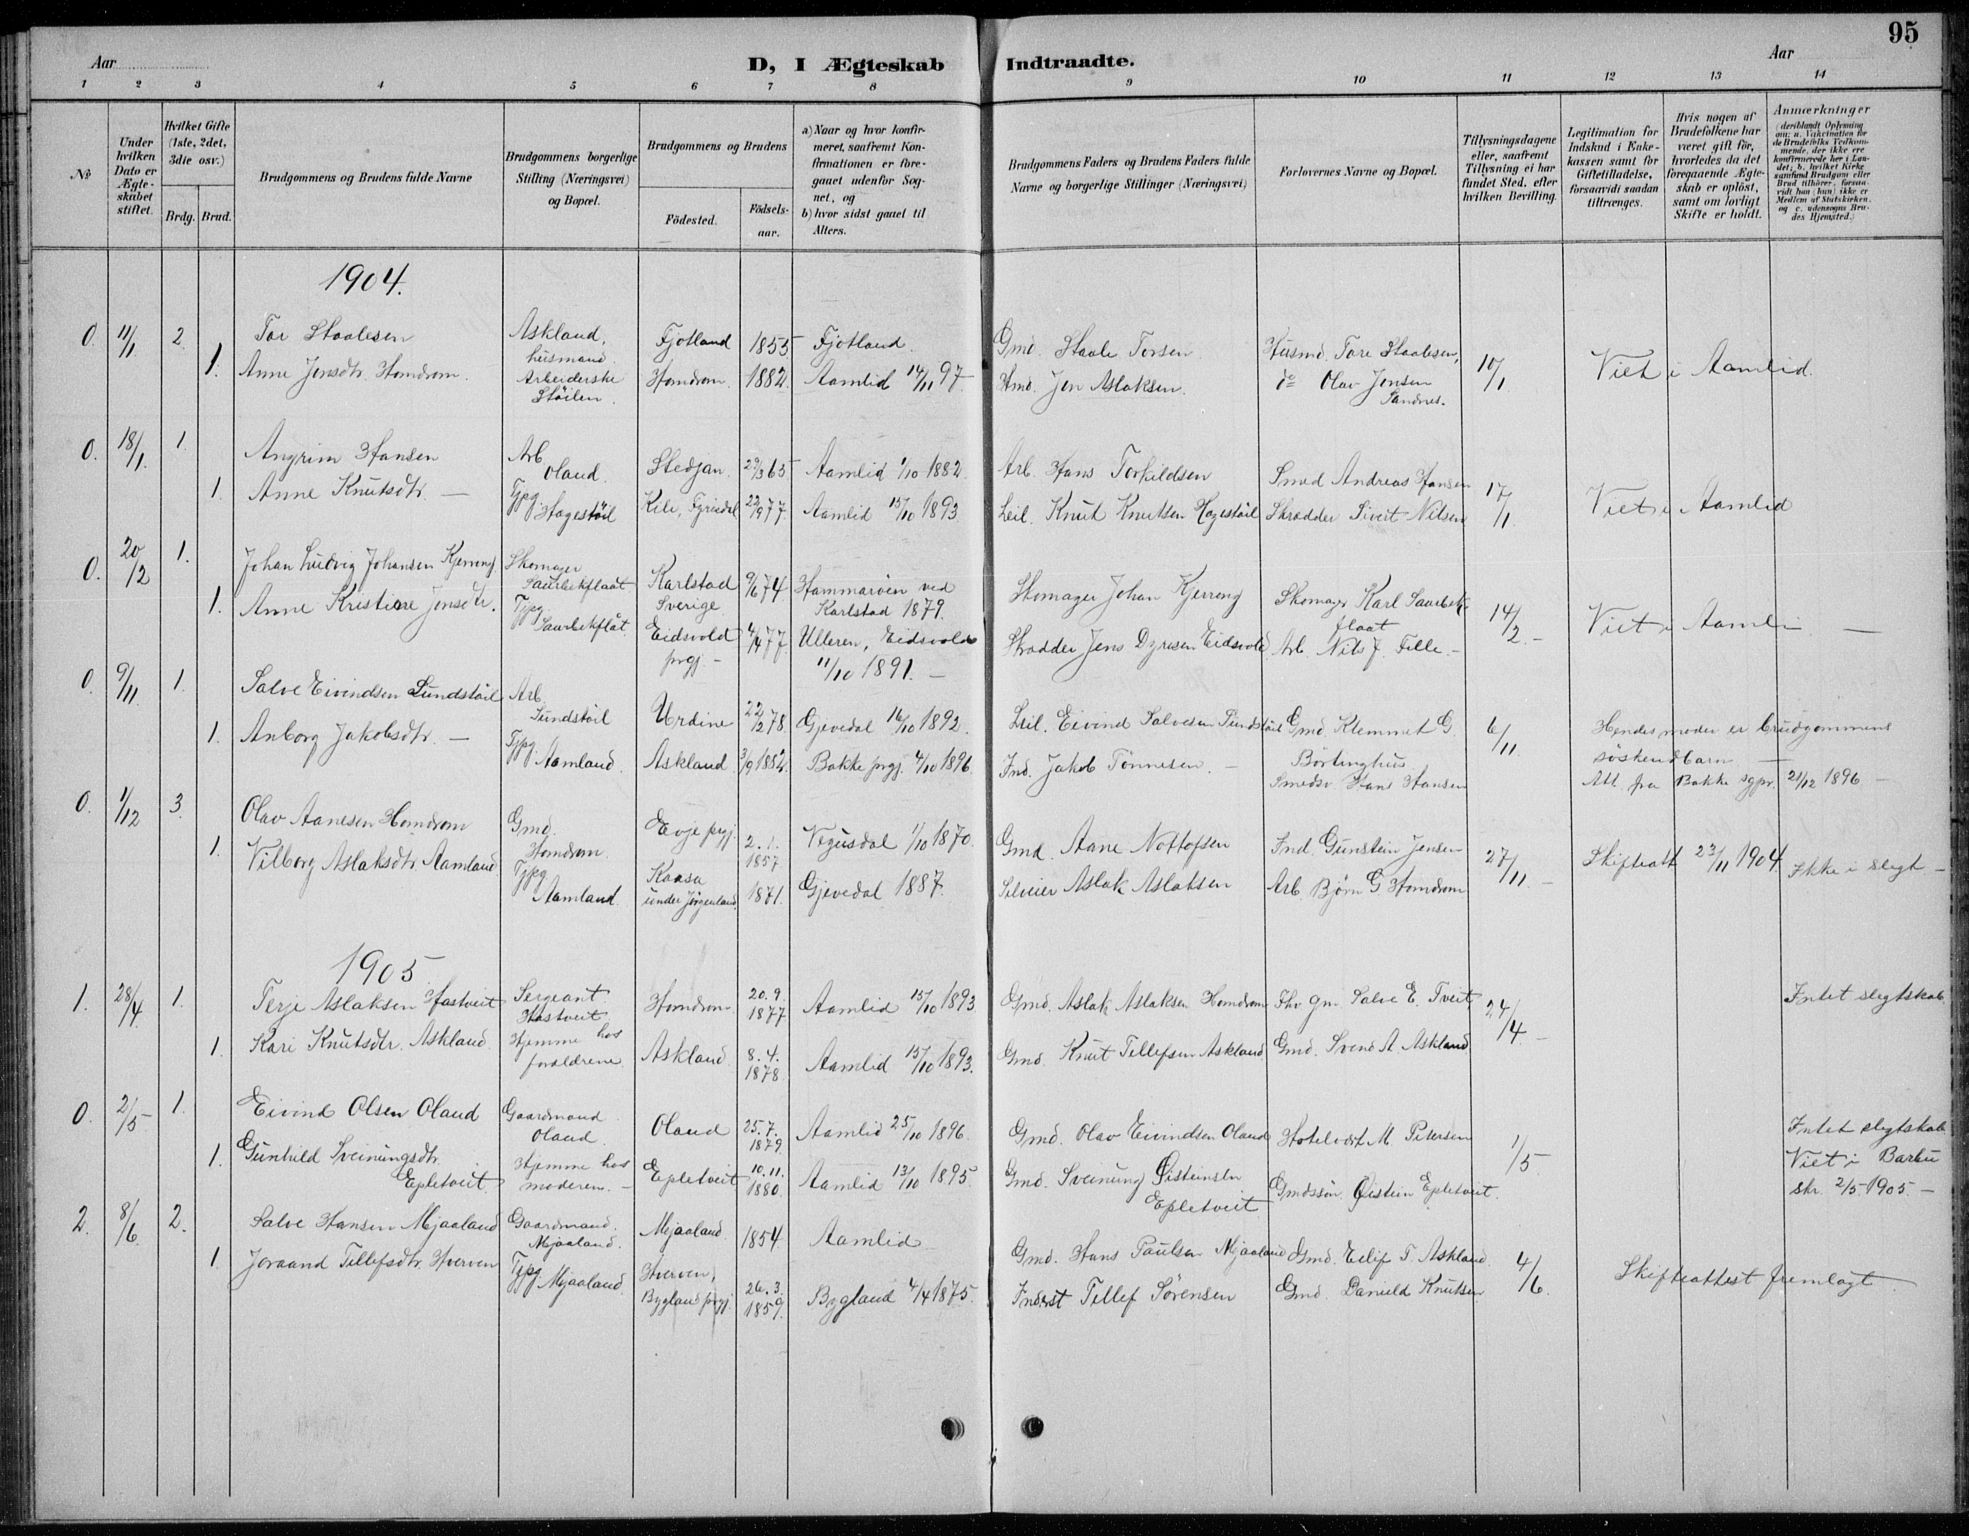 95
Aar
D, I Ægteskab Indtraadte.
Aar
1 2 3 4 5 6 7 8 9 10 11 12 13 14
No
Under hvilken Dato er Ægteskabet stiftet.
Hvilket Gifte (1ste, 2det, 3die osv.)
Brdg. Brud.
Brudgommens og Brudens fulde Navne
Brudgommens borgerlige Stilling (Næringsvei) og Bopæl.
Brudgommens og Brudens
Födested.
Födselsaar.
a) Naar og hvor konfirmeret, saafremt Konfirmationen er foregaaet udenfor Sognet, og
b) hvor sidst gaaet til Alters.
Brudgommens Faders og Brudens Faders fulde Navne og borgerlige Stillinger (Næringsvei)
Forlovernes Navne og Bopæl.
Tillysningsdagene eller, saafremt Tillysning ei har fundet Sted, efter hvilken Bevilling.
Legitimation for Indskud i Enkekassen samt for Giftetilladelse, forsaavidt saadan tiltrænges.
Hvis nogen af Brudefolkene har været gift før, hvorledes da det foregaaende Ægteskab er oplöst, samt om lovligt Skifte er holdt.
Anmærkninger
(deriblandt Oplysning om: a. Vakcination for de Brudefolks Vedkommende, der ikke ere konfirmerede her i Landet, b. hvilket Kirkesamfund Brudgom eller Brud tilhörer, forsaavidt han (hun) ikke er Medlem af Statskirken, og c. udensogns Brudes Hjemsted.)
1904.
0. 11/1 2. Tor Staalesen Askland, husmand. Fjotland 1855 Fjotland. Gmd. Staale Torsen. Husmd. Tore Staalesen, 10/1 Viet i Aamlid.
1. Anne Jensdtr. Homdrom. Arbeiderske Stöilen. Homdrom. 1882. Aamlid 14/11 97. Hmd. Jen Aslaksen. do Olav Jensen Sandnes.
0. 18/1. 1. Angrim Hansen Arb. Oland. Stedjan. 29/3 65 Aamlid 1/10 1882. Arb. Hans Torkildsen Smed Andreas Hansen 17/1. Viet i Aamlid
1. Anne Knutsdtr. — Tjpg. Hagestöil Kile, Fyrisdal 22/9 77. Aamlid 15/10 1893. Leil. Knut Knutsen Hagestöil Skrædder Sivert Nilsen
0. 20/2 1. Johan Ludvig Johansen Kjerreng Skomager Saurbekflaat. Karlstad Sverige 9/6 74. Hammaröen ved Karlstad 1879. Skomager Johan Kjerreng Skomager Karl Saurbekflaat 14/2. — Viet i Aamli —
1. Anne Kristiane Jensdtr. Tjpg. Saurbekflåt. Eidsvold prgj. — 4/4 77. Ulleren, Eidsvold 11/10 1891. — Skrædder Jens Dyresen Eidsvold Arb. Nils J. Felle. —
0. 9/11. 1. Salve Eivindsen Lundstöil Arb. Lundstöil Urdine 22/2 78. Gjevedal 16/10 1892. Leil. Eivind Salvesen Lundstöil Gmd. Klemmet G. Börtinghus 6/11. Hendes moder er brudgommens söskendbarn —
1. Anborg Jakobsdtr. — Tjpg. Aamland. Askland 3/9 1882. Bakke prgj. 4/10 1896. Ind. Jakob Tönnesen. — Smedsv. Hans Hansen Att. fra Bakke sgpr. 21/12 1896 —
0. 1/12 3. Olav Aanesen Homdrom Gmd. Homdrom. Evje prgj. 2.1. 1857 Vegusdal 1/10 1870. Gmd. Aane Nottofsen Ind. Gunstein Jensen 27/11. — Skifteatt. 23/11 1904. Ikke i slegt —
1. Vilborg Aslaksdtr. Aamland Tjpg. Aamland. Kaasa under Jörgenland. 1871. Gjevedal 1887. Selveier Aslak Aslaksen Arb. Björn G. Homdrom
1905
1. 28/4. 1. Terje Aslaksen Hastveit Sergeant. Hastveit Homdrom 20.9. 1877 Aamlid 15/10 1893 Gmd. Aslak Aslaksen Homdrom Fhv. gm. Salve E. Tveit, 24/4 — Intet slegtskab
1. Kari Knutsdtr. Askland. Hjemme hos forældrene. Askland. 8.4. 1878. Aamlid 15/10 1893. Gmd. Knut Tellefsen Askland Gmd. Svend A. Askland
0. 2/5 — 1. Eivind Olsen Oland Gaardmand. Oland. Oland 25.7. 1879. Aamlid 25/10 1896. Gmd. Olav Eivindsen Oland Hotelvært M. Petersen 1/5. Intet slegtskab.
1. Gunhild Sveinungsdtr. Epletveit. Hjemme hos moderen. — Epletveit 10.11. 1880. Aamlid 13/10 1895. Gmd. Sveinung Öisteinsen Epletveit Gmdssön. Öistein Epletveit. Viet i Barbu skr. 2/5 1905. —
2. 8/6. 2. Salve Hansen Mjaaland Gaardmand. Mjaaland. Mjaaland 1854. Aamlid Gmd. Hans Paulsen Mjaaland Gmd. Eilif T. Askland. 4/6. Skifteattest fremlagt.
1. Joraand Tellefsdtr. Hverven Tjpg. Mjaaland. Hverven, Bygland prgj. 26.3. 1859. Bygland 4/4 1875. Inderst Tellef Sörensen Gmd. Danuld Knutsen